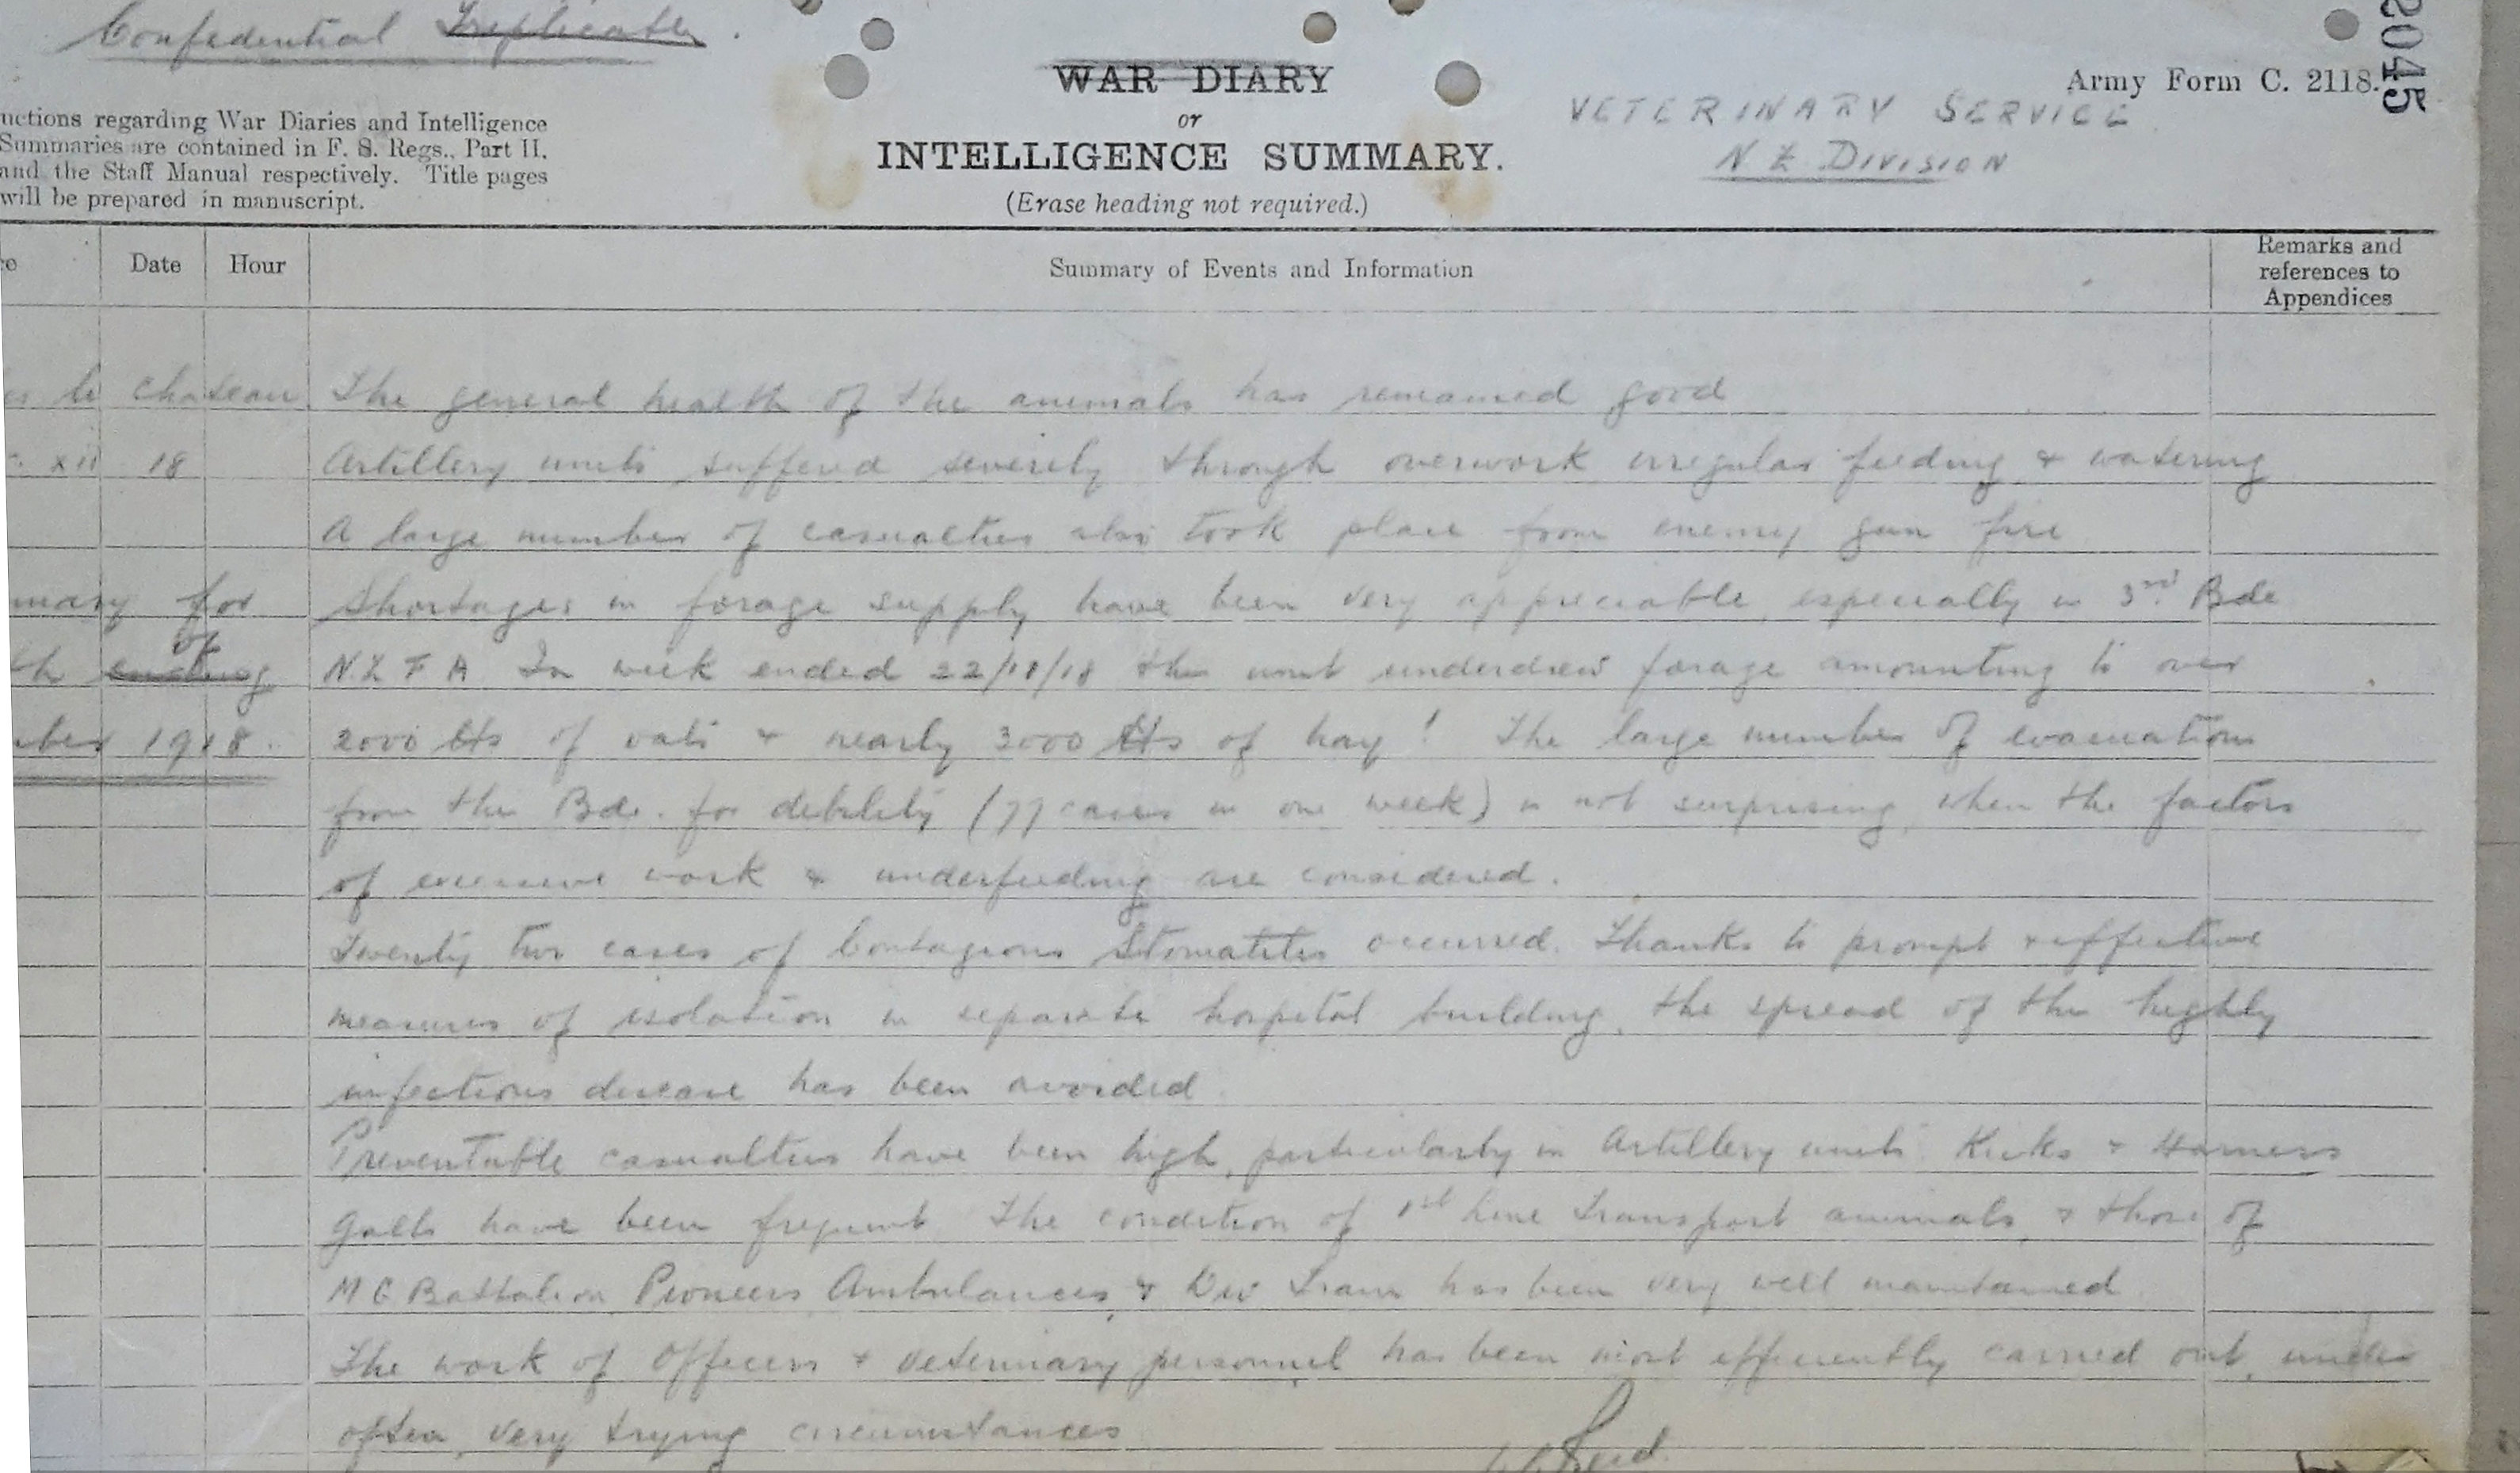 Confidential Triplicate.
WAR DIARY
or
INTELLIGENCE SUMMARY.
(Erase heading not required.)
Army Form C. 2118.
2045
VETERINARY SERVICE
N Z DIVISION
uctions regarding War Diaries and Intelligence
Summaries are contained in F. S. Regs., Part II.
and the Staff Manual respectively. Title pages
will be prepared in manuscript.
Date Hour Summary of Events and Information Remarks and references to Appendices
le Chateau The general health of the animals has remained good
xii 18 Artillery units suffered severely through overwork irregular feeding & watering
A large number of casualties also took place from enemy gun fire
mary for Shortages in forage supply have been very appreciable, especially in 3rd Bde
of
th ending N.Z F A In week ended 22/11/18 this unit underdrew forage amounting to over
mber 1918. 2000 lbs of oats & nearly 3000 lbs of hay! The large number of evacuations
from this Bde. for debility (77 cases in one week) is not surprising, when the factors
of excessive work & underfeeding are considered.
Twenty two cases of Contagious Stomatitis occurred. Thanks to prompt & effective
measures of isolation in separate hospital building, the spread of this highly
infectious disease has been avoided.
Preventable casualties have been high, particularly in Artillery units. Kicks & Harness
Galls have been frequent. The condition of 1st Line Transport animals, & those of
M G Battalion, Pioneers, Ambulances, & Div Train has been very well maintained.
The work of Officers & veterinary personnel has been most efficiently carried out, under
often, very trying circumstances
Reid.